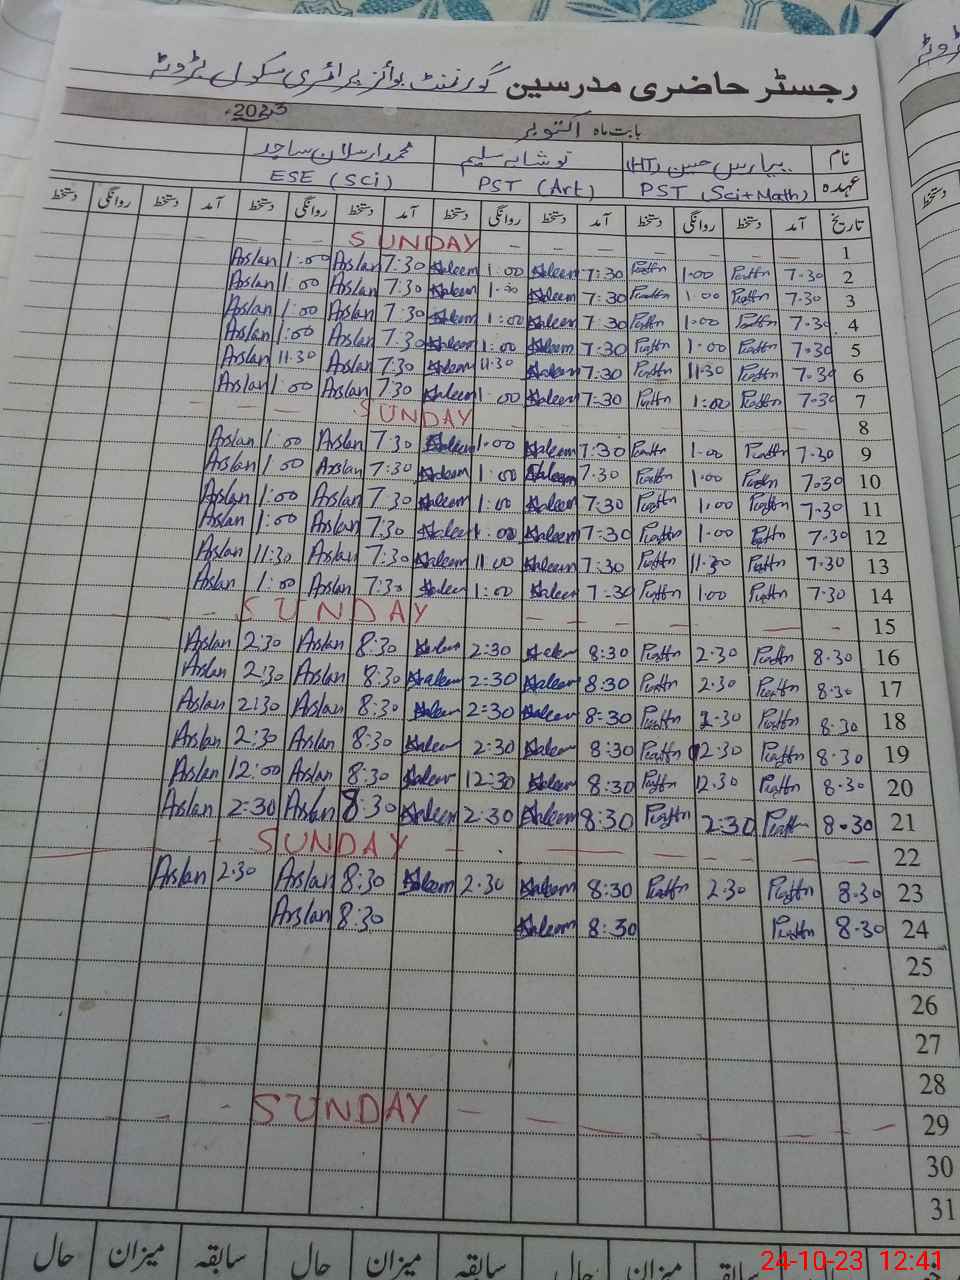 رجسٹر حاضری مدرسین گورنمنٹ بوائز پرائمری سکول
بابت ماہ اکتوبر 2023ء
نام حسن (HT) سلیم محمد ارسلان ساجد
عہدہ PST (Sci+Math) PST (Art) ESE (Sci)
تاریخ آمد دستخط روانگی دستخط آمد دستخط روانگی دستخط آمد دستخط روانگی دستخط آمد دستخط روانگی دستخط
1 SUNDAY
2 7.30 1.00 7:30 Saleem 1:00 Saleem 7:30 Arslan 1:00 Arslan
3 7.30 1.00 7:30 Saleem 1.00 Saleem 7:30 Arslan 1:00 Arslan
4 7.30 1.00 7:30 Saleem 1:00 Saleem 7:30 Arslan 1:00 Arslan
5 7.30 1.00 7:30 Saleem 1:00 Saleem 7:30 Arslan 1:00 Arslan
6 7.30 11.30 7:30 Saleem 11.30 Saleem 7:30 Arslan 11.30 Arslan
7 7.30 1:00 7:30 Saleem 1:00 Saleem 7:30 Arslan 1:00 Arslan
8 SUNDAY
9 7.30 1.00 7:30 Saleem 1.00 Saleem 7:30 Arslan 1:00 Arslan
10 7.30 1.00 7:30 Saleem 1:00 Saleem 7:30 Arslan 1:00 Arslan
11 7.30 1.00 7:30 Saleem 1:00 Saleem 7:30 Arslan 1:00 Arslan
12 7.30 1.00 7:30 Saleem 1:00 Saleem 7:30 Arslan 1:00 Arslan
13 7.30 11.30 7:30 Saleem 11:00 Saleem 7:30 Arslan 11:30 Arslan
14 7.30 1.00 7:30 Saleem 1:00 Saleem 7:30 Arslan 1:00 Arslan
15 SUNDAY
16 8.30 2.30 8:30 Saleem 2:30 Saleem 8:30 Arslan 2:30 Arslan
17 8.30 2.30 8:30 Saleem 2:30 Saleem 8:30 Arslan 2:30 Arslan
18 8.30 2.30 8:30 Saleem 2:30 Saleem 8:30 Arslan 2:30 Arslan
19 8.30 2.30 8:30 Saleem 2:30 Saleem 8:30 Arslan 2:30 Arslan
20 8.30 12.30 8:30 Saleem 12:30 Saleem 8:30 Arslan 12:00 Arslan
21 8.30 2:30 8:30 Saleem 2:30 Saleem 8:30 Arslan 2:30 Arslan
22 SUNDAY
23 8.30 2.30 8:30 Saleem 2.30 Saleem 8:30 Arslan 2.30 Arslan
24 8.30 8:30 Saleem 8:30 Arslan
25
26
27
28
29 SUNDAY
30
31
سابقہ حال میزان سابقہ حال میزان سابقہ حال میزان حال
24-10-23 12:41